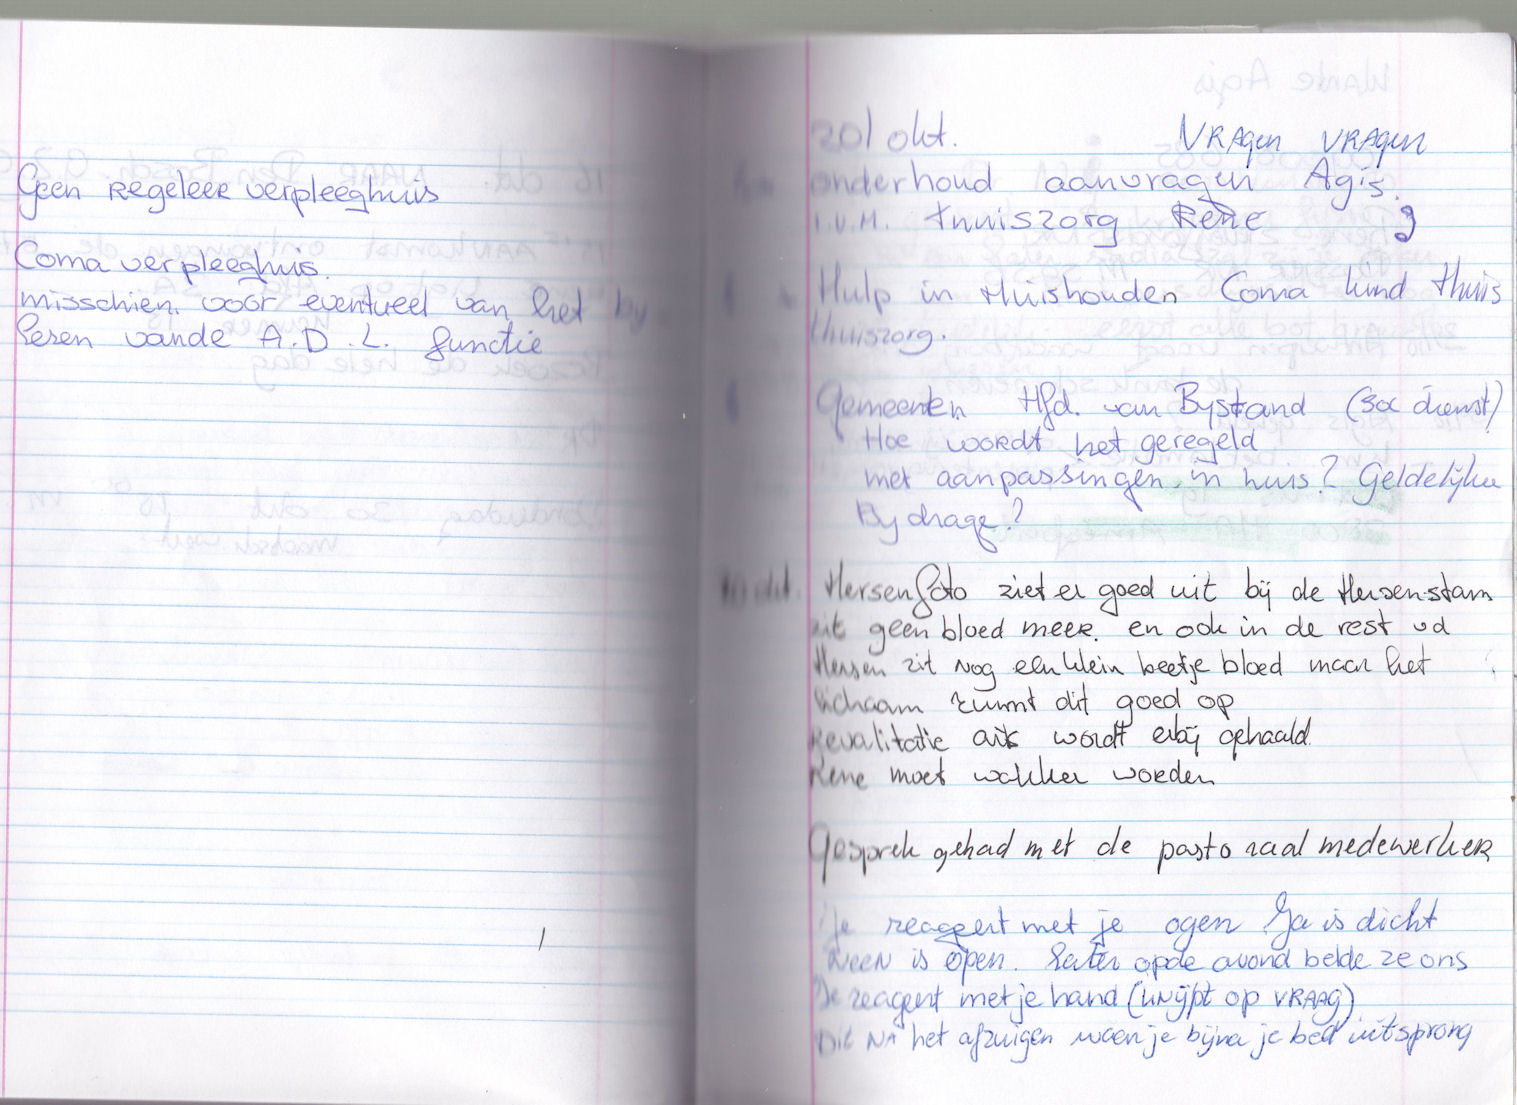 Geen Regeleer verpleeghuis
Coma verpleeghuis.
misschien. voor eventueel van het by
leren vande A.D.L. functie
20/ okt. VRAgen VRAgen
onderhoud aanvragen Agis.
I.V.M. thuiszorg Rene
Hulp in Huishouden Coma kind thuis
thuiszorg.
Gemeenten Hfd. van Bystand (Soc dienst)
Hoe wordt het geregeld
met aanpassingen in huis? Geldelijke
Bydrage?
okt. Hersenfoto ziet er goed uit bij de Hersenstam
zit geen bloed meer. en ook in de rest vd
Hersen zit nog een klein beetje bloed maar het
lichaam ruimt dit goed op
Revalitatie arts wordt erbij gehaald.
Rene moet wakker worden
Gesprek gehad met de pastoraal medewerker
Je reageert met je ogen Ja is dicht
Neen is open. Later opde avond belde ze ons
Je reageert met je hand (knijpt op VRAAG)
Dit NA het afzuigen waen je bijna je bed uitsprong